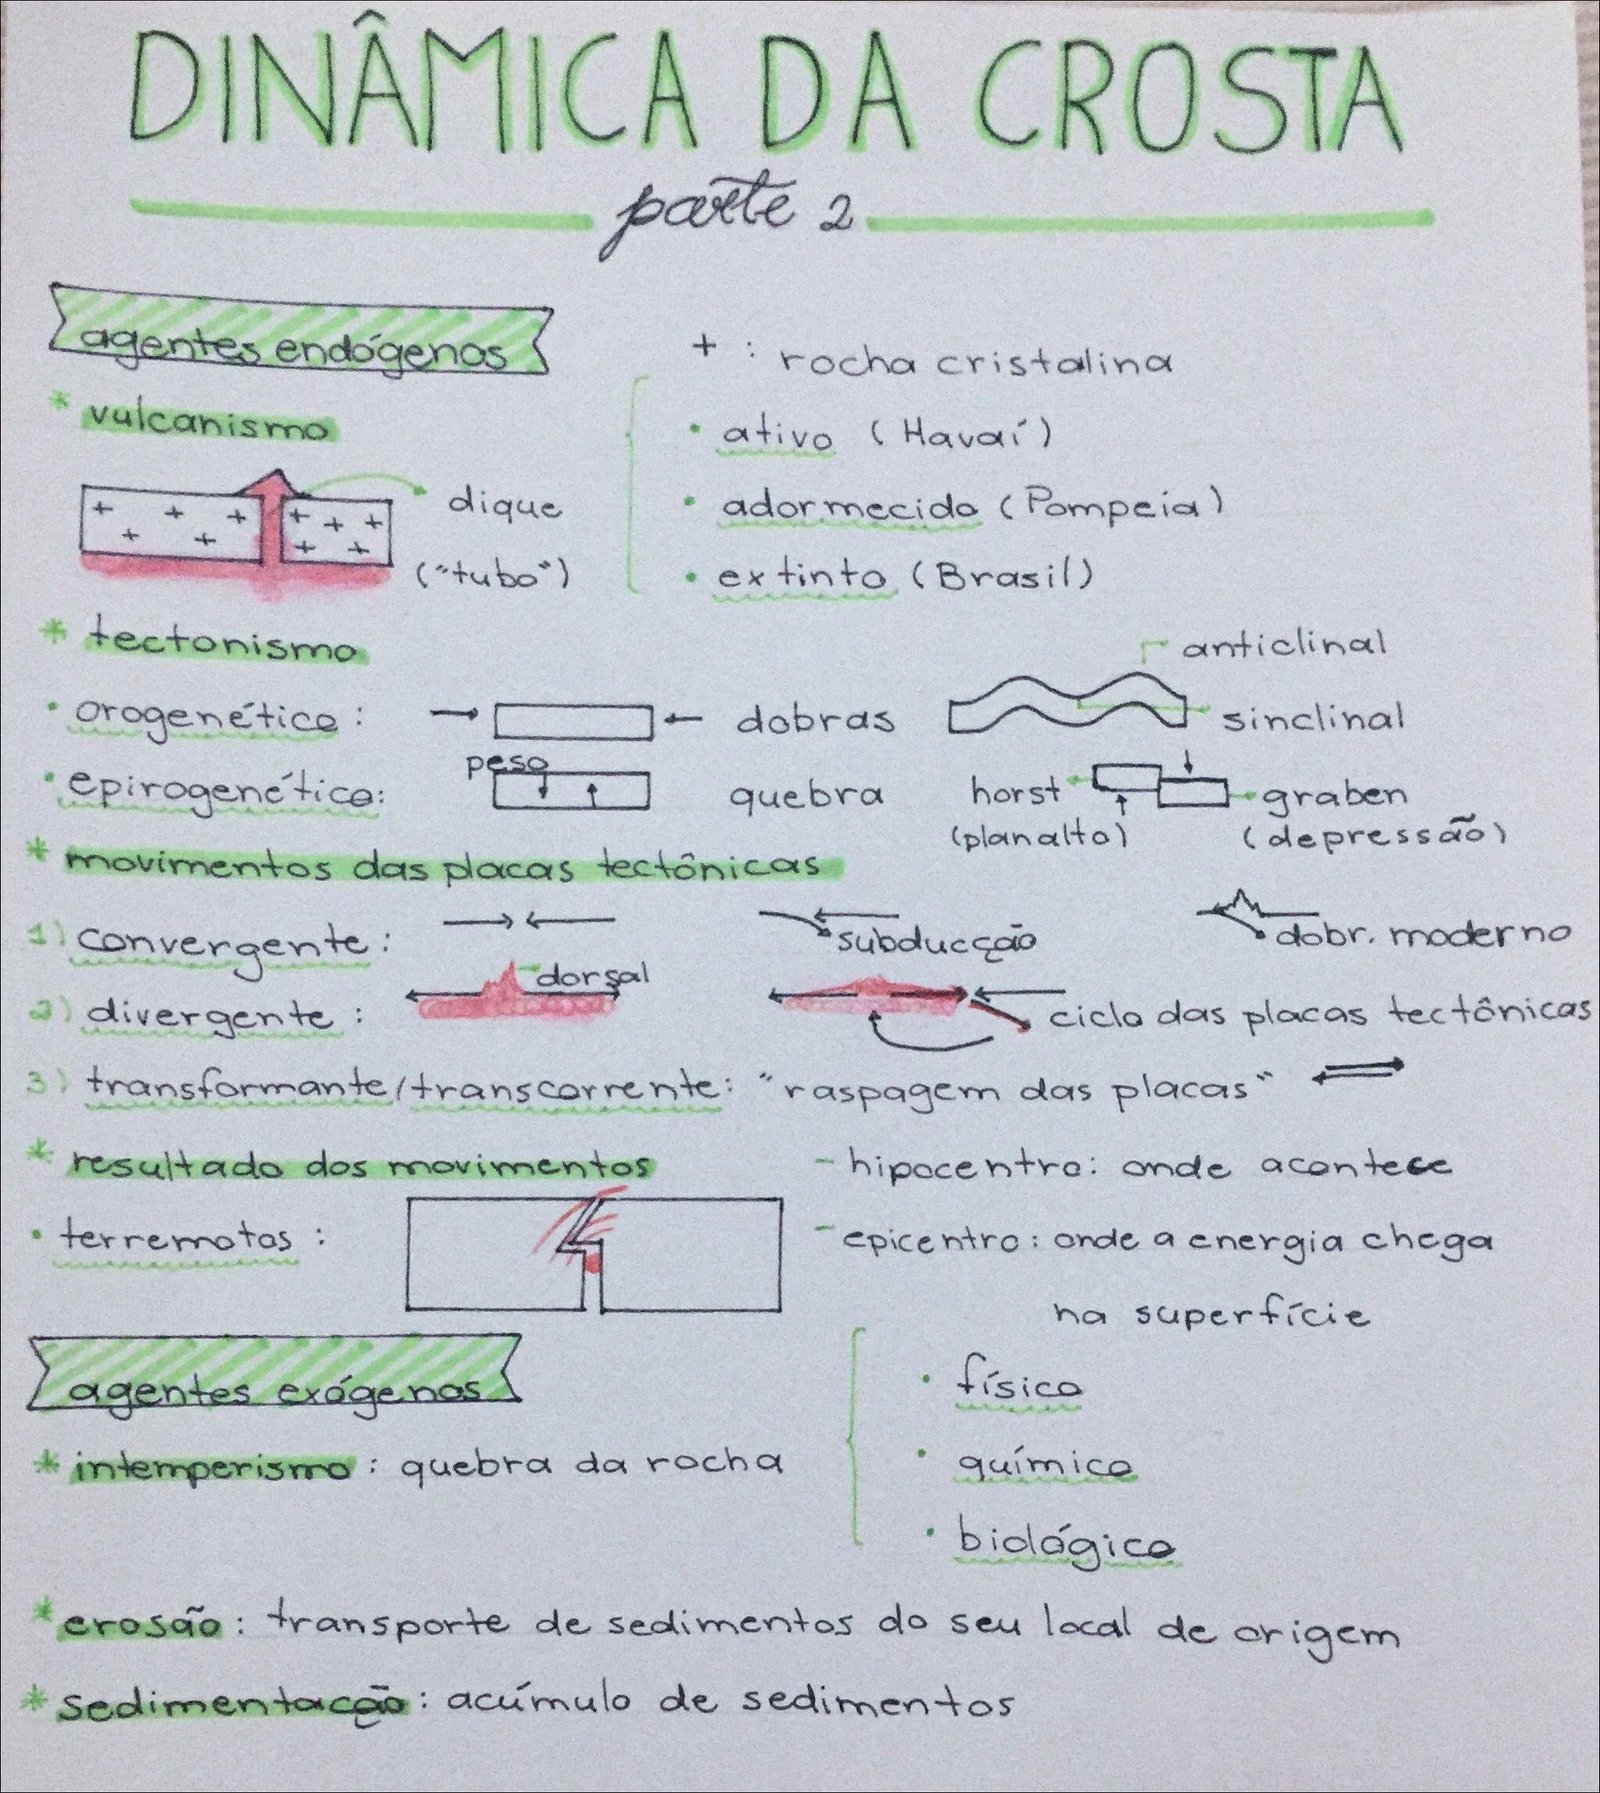 DINÂMICA DA CROSTA
parte 2
agentes endógenos
+ : rocha cristalina
* vulcanismo
• ativo (Havaí)
dique
• adormecido (Pompeia)
("tubo")
• extinto (Brasil)
* tectonismo
anticlinal
• orogenético : dobras sinclinal
peso
• epirogenético: quebra horst graben
(planalto) (depressão)
* movimentos das placas tectônicas
1) convergente : subducção dobr. moderno
dorsal
2) divergente : ciclo das placas tectônicas
3) transformante/transcorrente: "raspagem das placas"
* resultado dos movimentos - hipocentro: onde acontece
• terremotos : - epicentro: onde a energia chega
na superfície
agentes exógenos
• físico
* intemperismo : quebra da rocha • químico
• biológico
* erosão : transporte de sedimentos do seu local de origem
* sedimentação : acúmulo de sedimentos